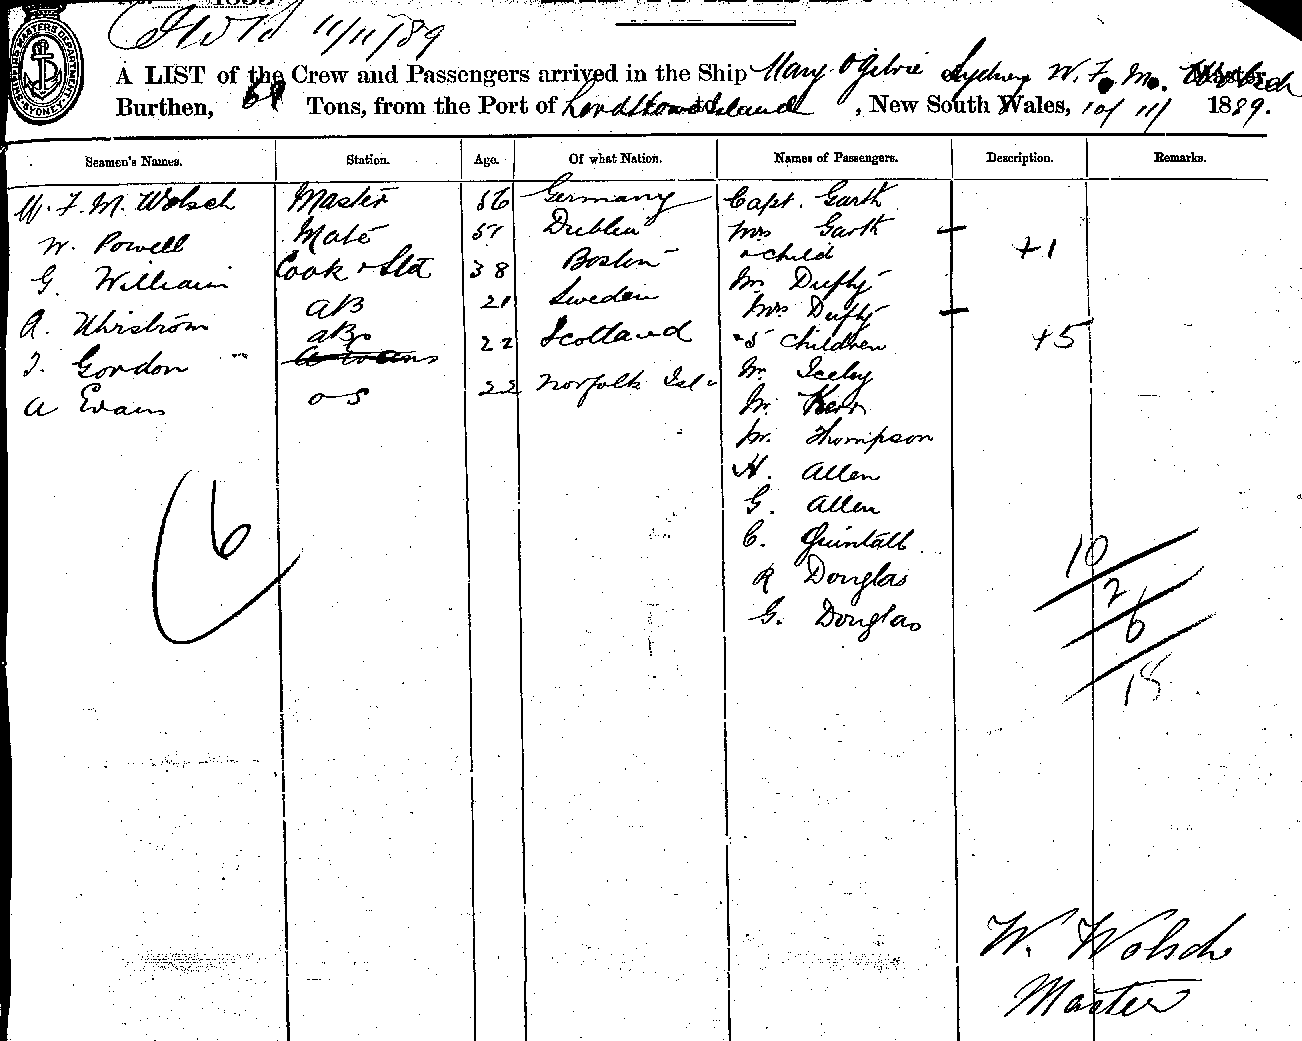 11/11/89
A LIST of the Crew and Passengers arrived in the Ship Mary Ogilvie Sydney W. F. M. Wolsch Master
Burthen, 69 Tons, from the Port of Lord Howe Island, New South Wales, 10/11/ 1889.
Seamen's Names. Station. Age. Of what Nation. Names of Passengers. Description. Remarks.
W. F. M. Wolsch Master 56 Germany Capt. Garth
W. Powell Mate 51 Dublin Mrs Garth
& child +1
G. William Cook & Std 38 Boston Mr Dufty
A. AB 21 Sweden Mrs Dufty
J. Gordon AB 22 Scotland 5 children +5
A Evans
A Evans OS 22 Norfolk Isl Mr Iceley
Mr Kerr
Mr. Thompson
H. Allen
G. Allen
C. Quintall
R Douglas
G. Douglas
6
10
2
6
18
W. Wolsch
Master